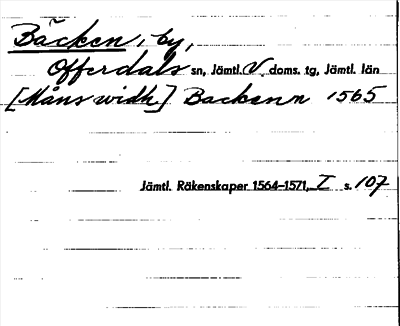 Bäcken, by,
Offerdals sn, Jämtl. V. doms. tg, Jämtl. län
[Måns widh] Backenn 1565
Jämtl. Räkenskaper 1564–1571, I s. 107